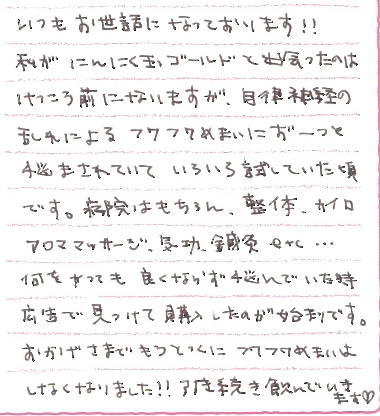 いつもお世話になっております!!
私がにんにく玉ゴールドと出会ったのは
けっこう前になりますが、自律神経の
乱れによるフワフワめまいにずーっと
悩まされていていろいろ試していた頃
です。病院はもちろん、整体、カイロ
アロママッサージ、気功、鍼灸 etc…
何をやっても良くならず悩んでいた時
広告で見つけて購入したのが始まりです。
おかげさまでもうとっくにフワフワめまいは
しなくなりました!!引き続き飲んでいき
ます♡